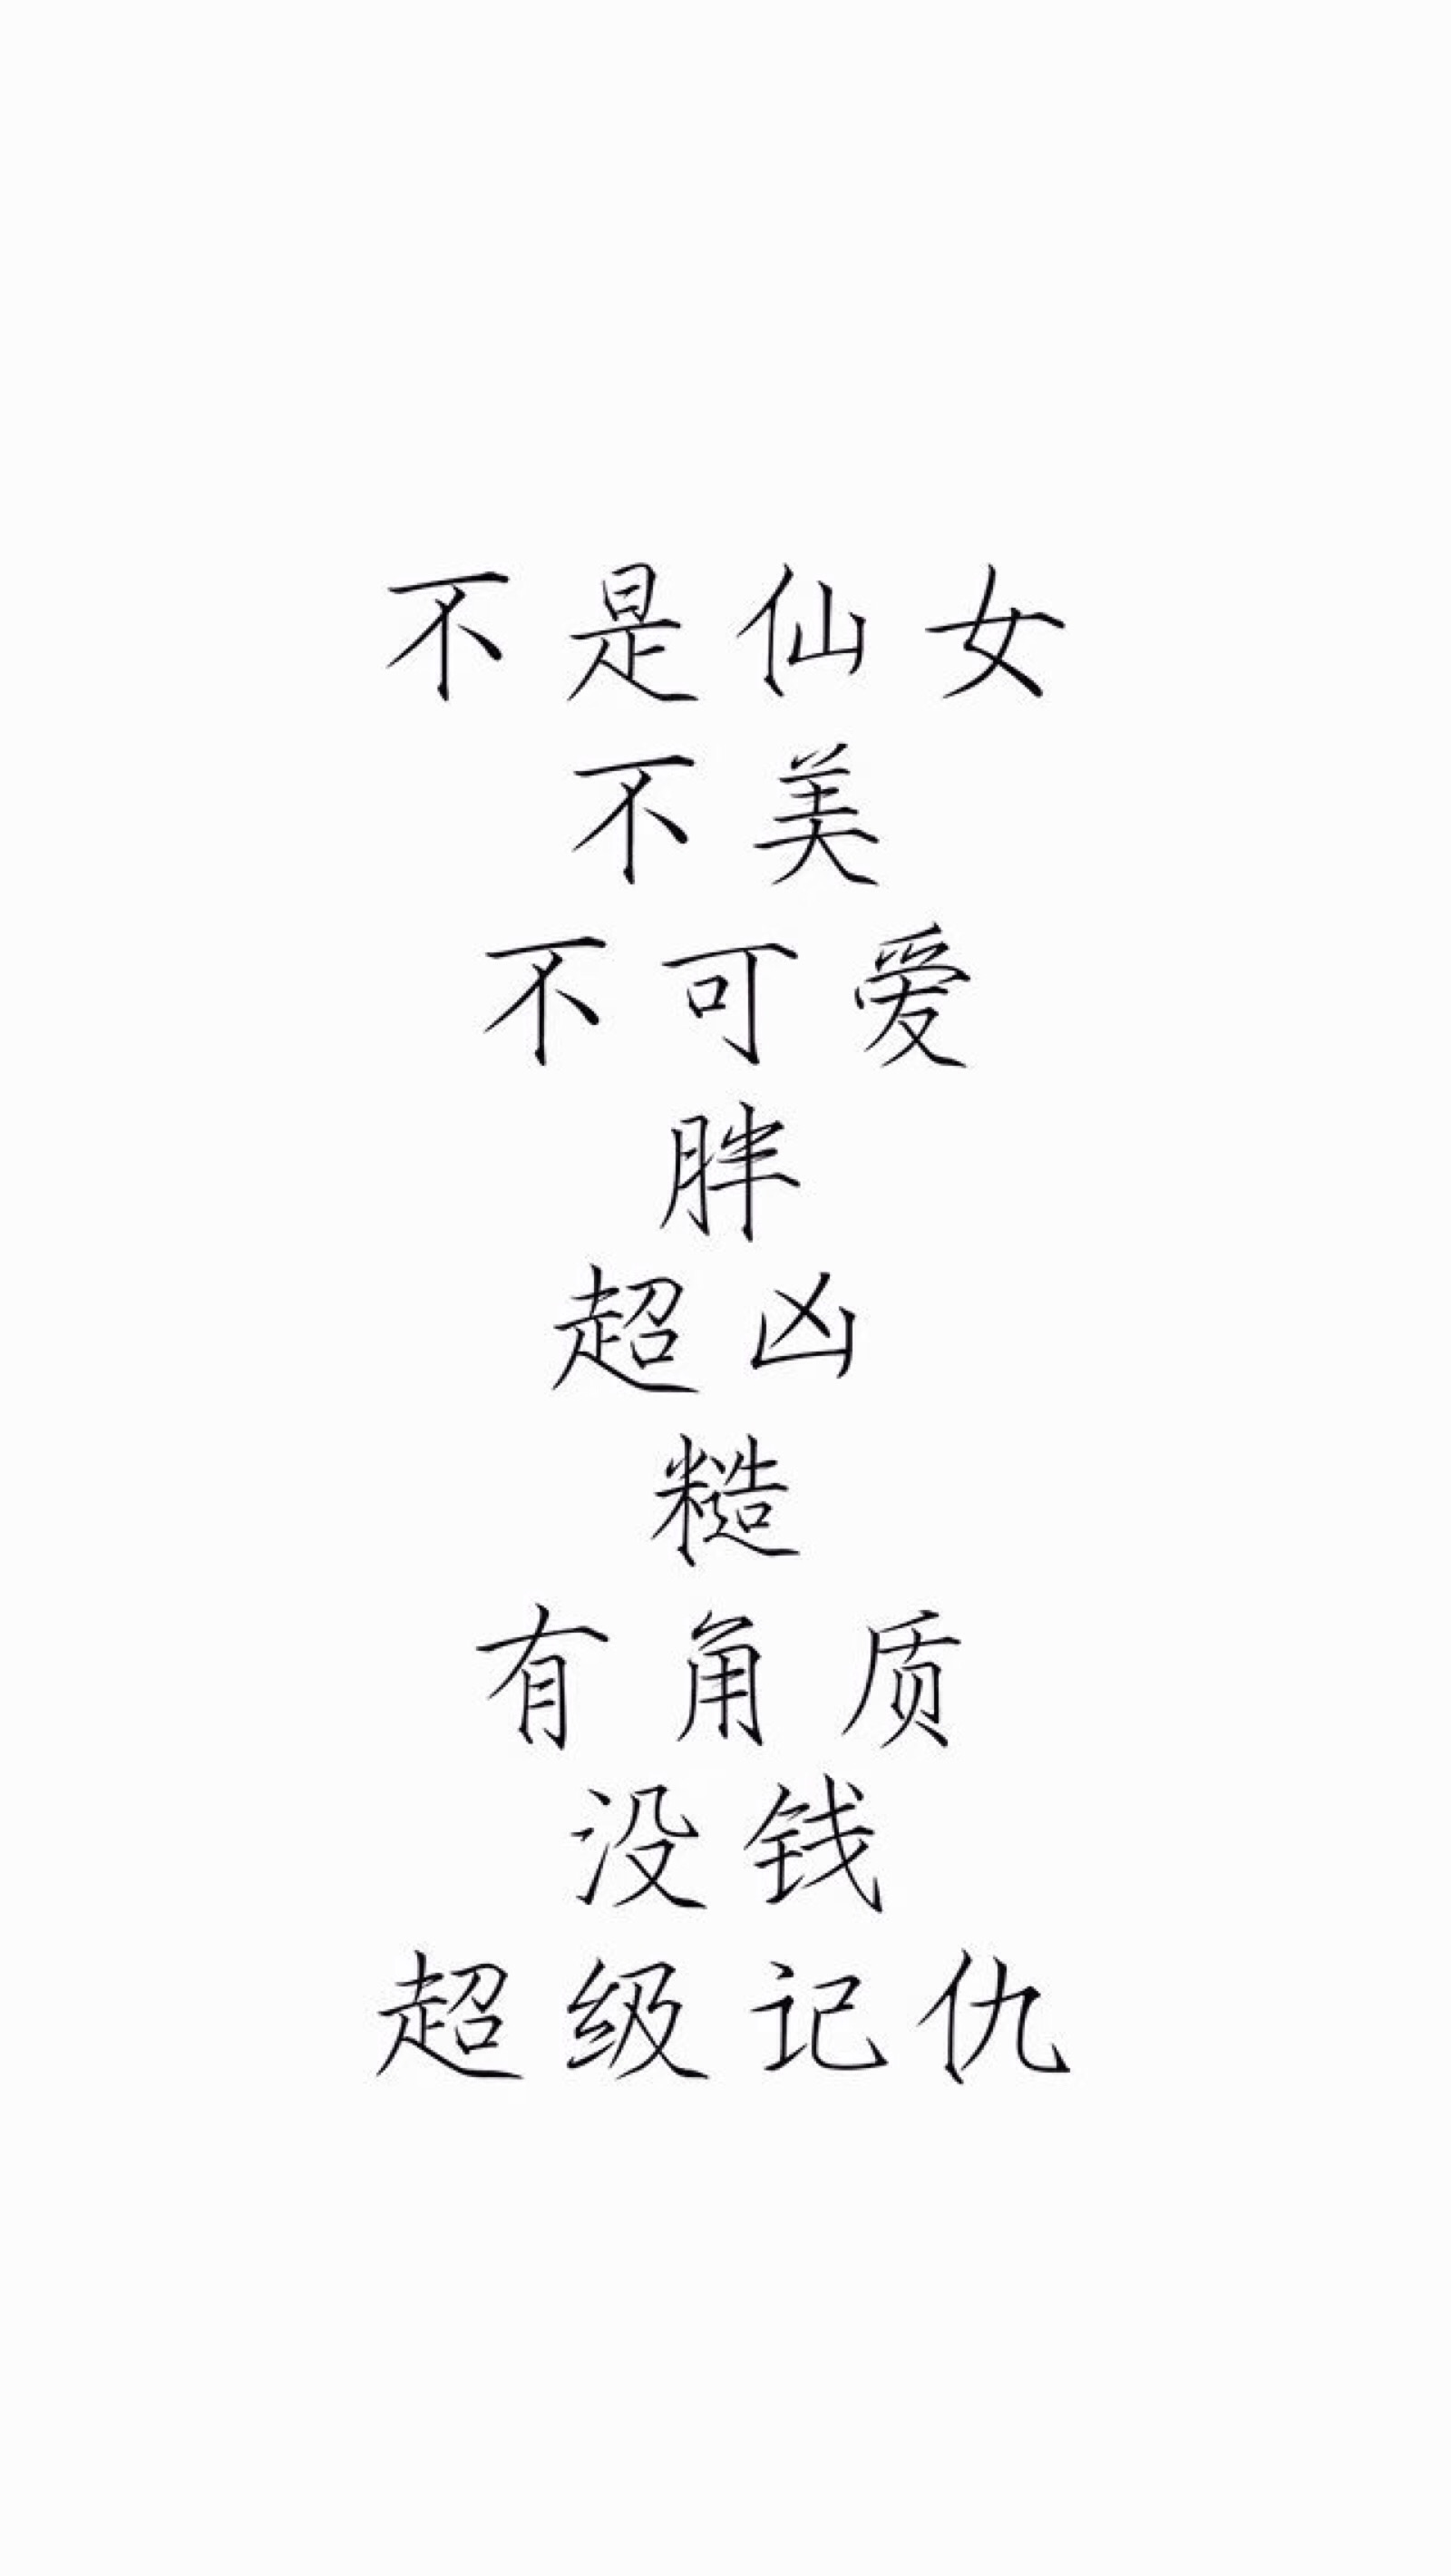 不是仙女
不美
不可爱
胖
超凶
糙
有角质
没钱
超级记仇